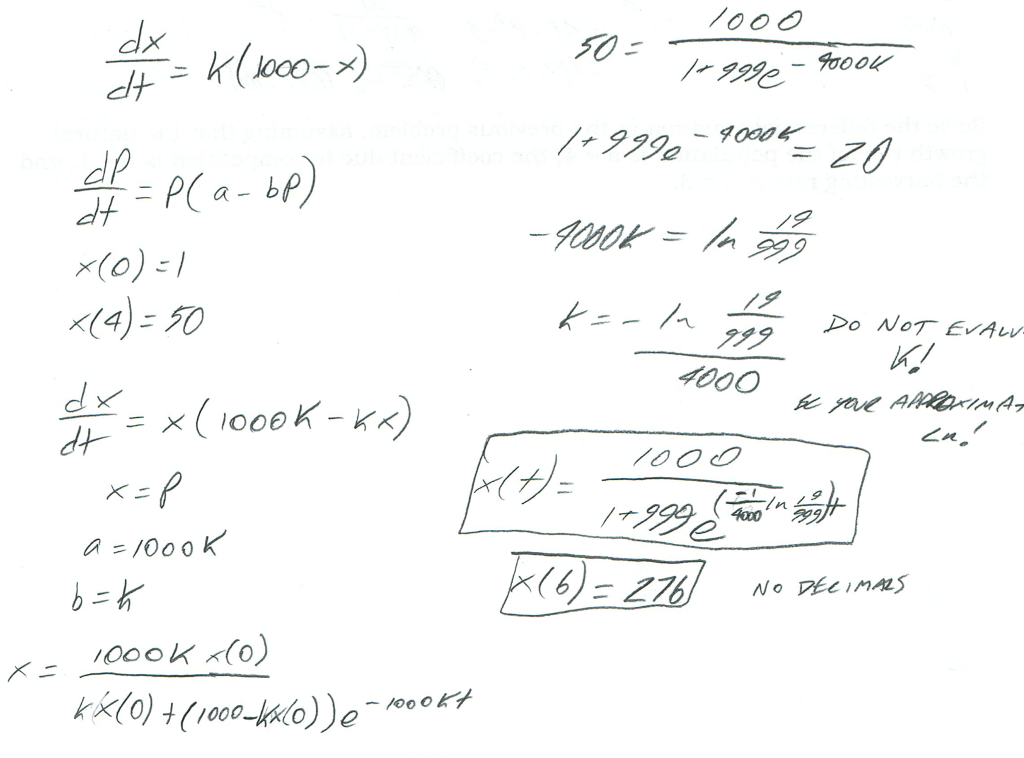 dx/dt = K(1000-x)
dP/dt = P(a-bP)
x(0)=1
x(4)=50
dx/dt = x(1000K-Kx)
x=P
a=1000K
b=K
x = 1000K x(0) / Kx(0)+(1000-Kx(0))e^-1000Kt
50 = 1000 / 1+999e^-4000K
1+999e^-4000K = 20
-4000K = ln 19/999
K = - ln 19/999 / 4000
DO NOT EVALU
K!
YOUR APPROXIMAT
Ln!
x(t) = 1000 / 1+999e^(-1/4000 ln 19/999)t
x(6) = 276
NO DECIMALS